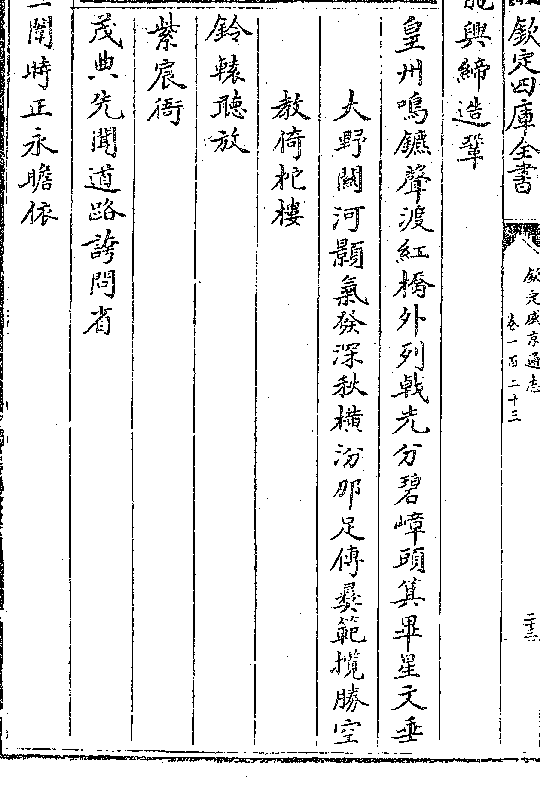 欽定四庫全書
欽定盛京通志
卷一百二十三
二十三
興締造鞏
皇州鳴鑣聲渡紅橋外列戟光分碧嶂頭箕畢星文垂
大野關河顥氣發深秋橫汾那足傳彝範攬勝空
教倚柁樓
鈴轅聽放
紫宸衙
茂典先聞道路誇問省
闈時正永瞻依